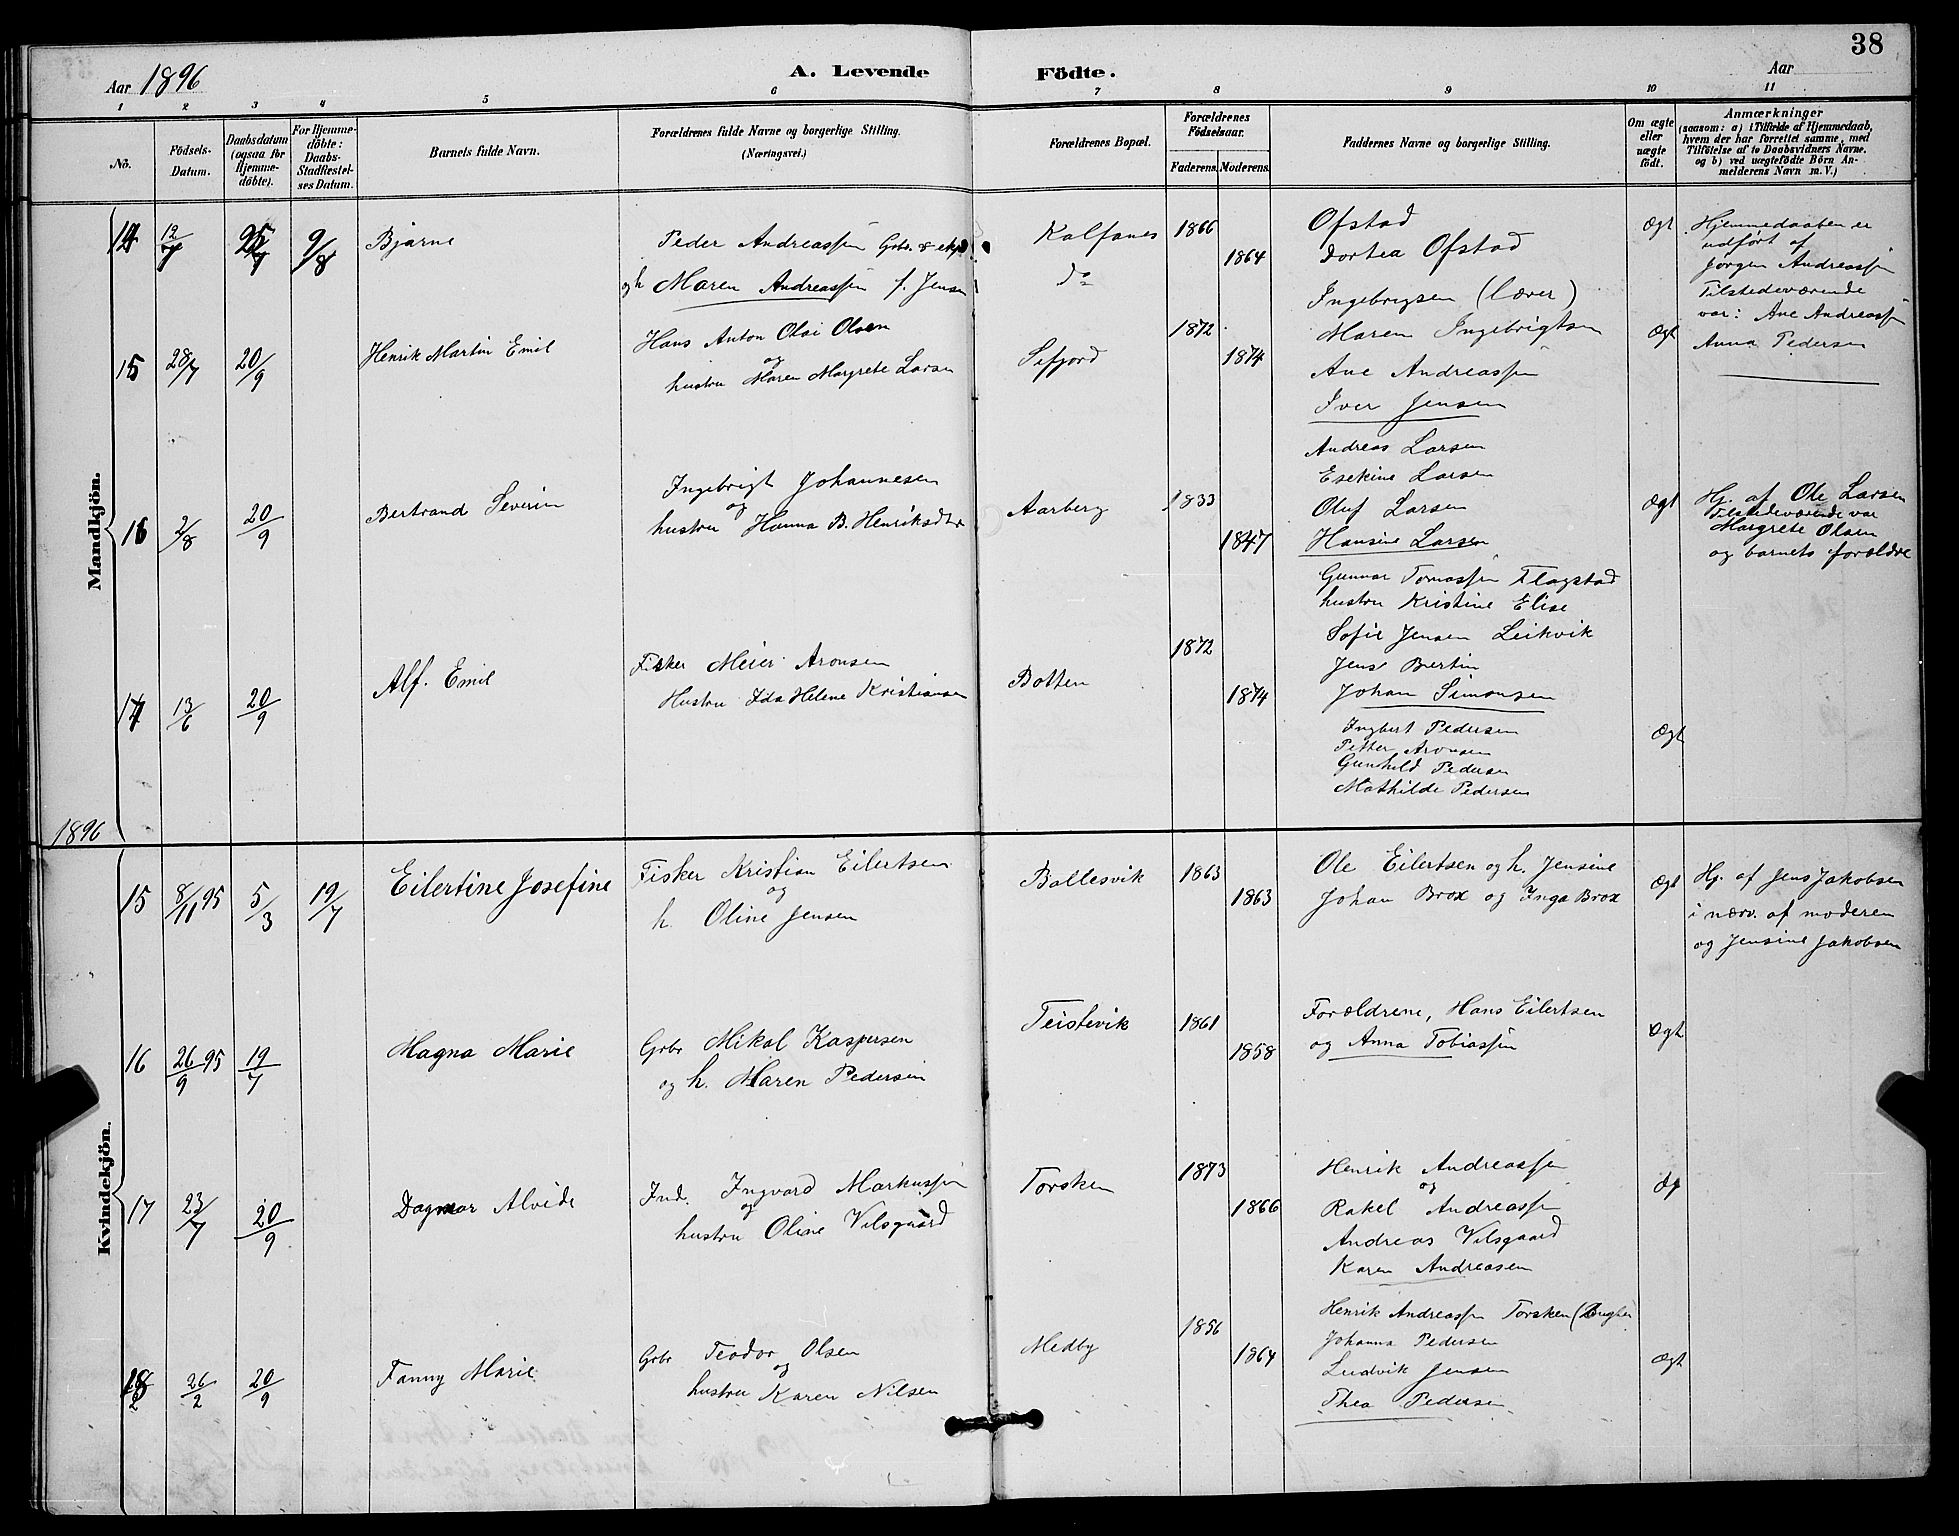 38
Aar 1896
A. Levende Födte.
Aar
1 2 3 4 5 6 7 8 9 10 11
Nö.
Födsels-Datum.
Daabsdatum (ogsaa för Hjemme-döbte).
For Hjemme-döbte: Daabs-Stadfestel-ses Datum.
Barnets fulde Navn.
Forældrenes fulde Navne og borgerlige Stilling.
(Næringsvei.)
Forældrenes Bopæl.
Forældrenes Födselsaar.
Faderens. Moderens.
Faddernes Navne og borgerlige Stilling.
Om ægte eller uægte födt.
Anmærkninger
(saasom: a) i Tilfælde af Hjemmedaab,
hvem der har forrettet samme, med
Tilföielse af to Daabsvidners Navne,
og b) ved uægtefödte Börn An-
melderens Navn m. V.)
Mandkjön.
14 12/7 9/8 Bjarne
Peder Andreassen Gbr.
og h Maren Andreassen f. Jensen
Kalfanes
do
1866
1864
Ofstad
Dortea Ofstad
Ingebrigsen (lærer)
Maren Ingebrigtsen
Ane Andreassen
Iver Jensen
Ægt
Hjemmedaaben er
udført af
Jørgen Andreassen
Tilstedeværende
var: Ane Andreassen
Anna Pedersen
15 28/7 20/9 Henrik Martin Emil
Hans Anton Olai Olsen
og
hustru Maren Margrete Larsen
Sifjord
1872
1874
Andreas Larsen
Esekine Larsen
Oluf Larsen
Hansine Larsen
Ægt
16 2/8 20/9 Bertrand Severin
Ingebrigt Johannesen
og
hustru Hanna B. Henriksdtr
Aarberg
1833
1847
Gunnar Tomassen Flagstad
hustru Kristine Elise
Sofie Jensen Leikvik
Jens Bertin
Johan Simonsen
Ægt
Hj. af Ole Larsen
Tilstedeværende var
Margrete Olsen
og barnets forældre
17 13/6 20/9 Alf. Emil
Fisker Meier Aronsen
Hustru Ida Helene Kristiansen
Botten
1872
1874
Ingbert Pedersen
Petter Aronsen
Gunhild Pedersen
Mathilde Pedersen
Ægt
1896
Kvindekjön.
15 8/11 95 5/3 19/7 Eilertine Josefine
Fisker Kristian Eilertsen
og
h. Oline Jensen
Ballesvik
1863
1863
Ole Eilertsen og h. Jensine
Johan Brox og Inga Brox
Ægt
Hj. af Jens Jakobsen
i nærv. af moderen
og Jensine Jakobsen
16 26/9 95 19/7 Magna Marie
Gbr Mikal Kaspersen
og h. Maren Pedersen
Teistevik
1861
1858
Forældrene, Hans Eilertsen
og Anna Tobiassen
Ægt
17 23/7 20/9 Dagmar Alvide
Ind. Ingvard Markussen
og
hustru Oline Vilsgaard
Torsken
1873
1866
Henrik Andreassen
og
Rakel Andreassen
Andreas Vilsgaard
Karen Andreasen
Æg
18 26/2 20/9 Fanny Marie
Gbr Teodor Olsen
og
hustru Karen Nilsen
Medby
1856
1864
Henrik Andreassen Torsken
Johanna Pedersen
Ludvik Jensen
Thea Pedersen
Ægt